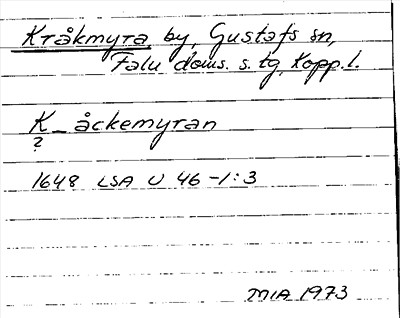 Kråkmyra by, Gustafs sn,
Falu doms. s. tg, Kopp. l.
K_åckemyran
?
1648 LSA U 46-1:3
MIA 1973